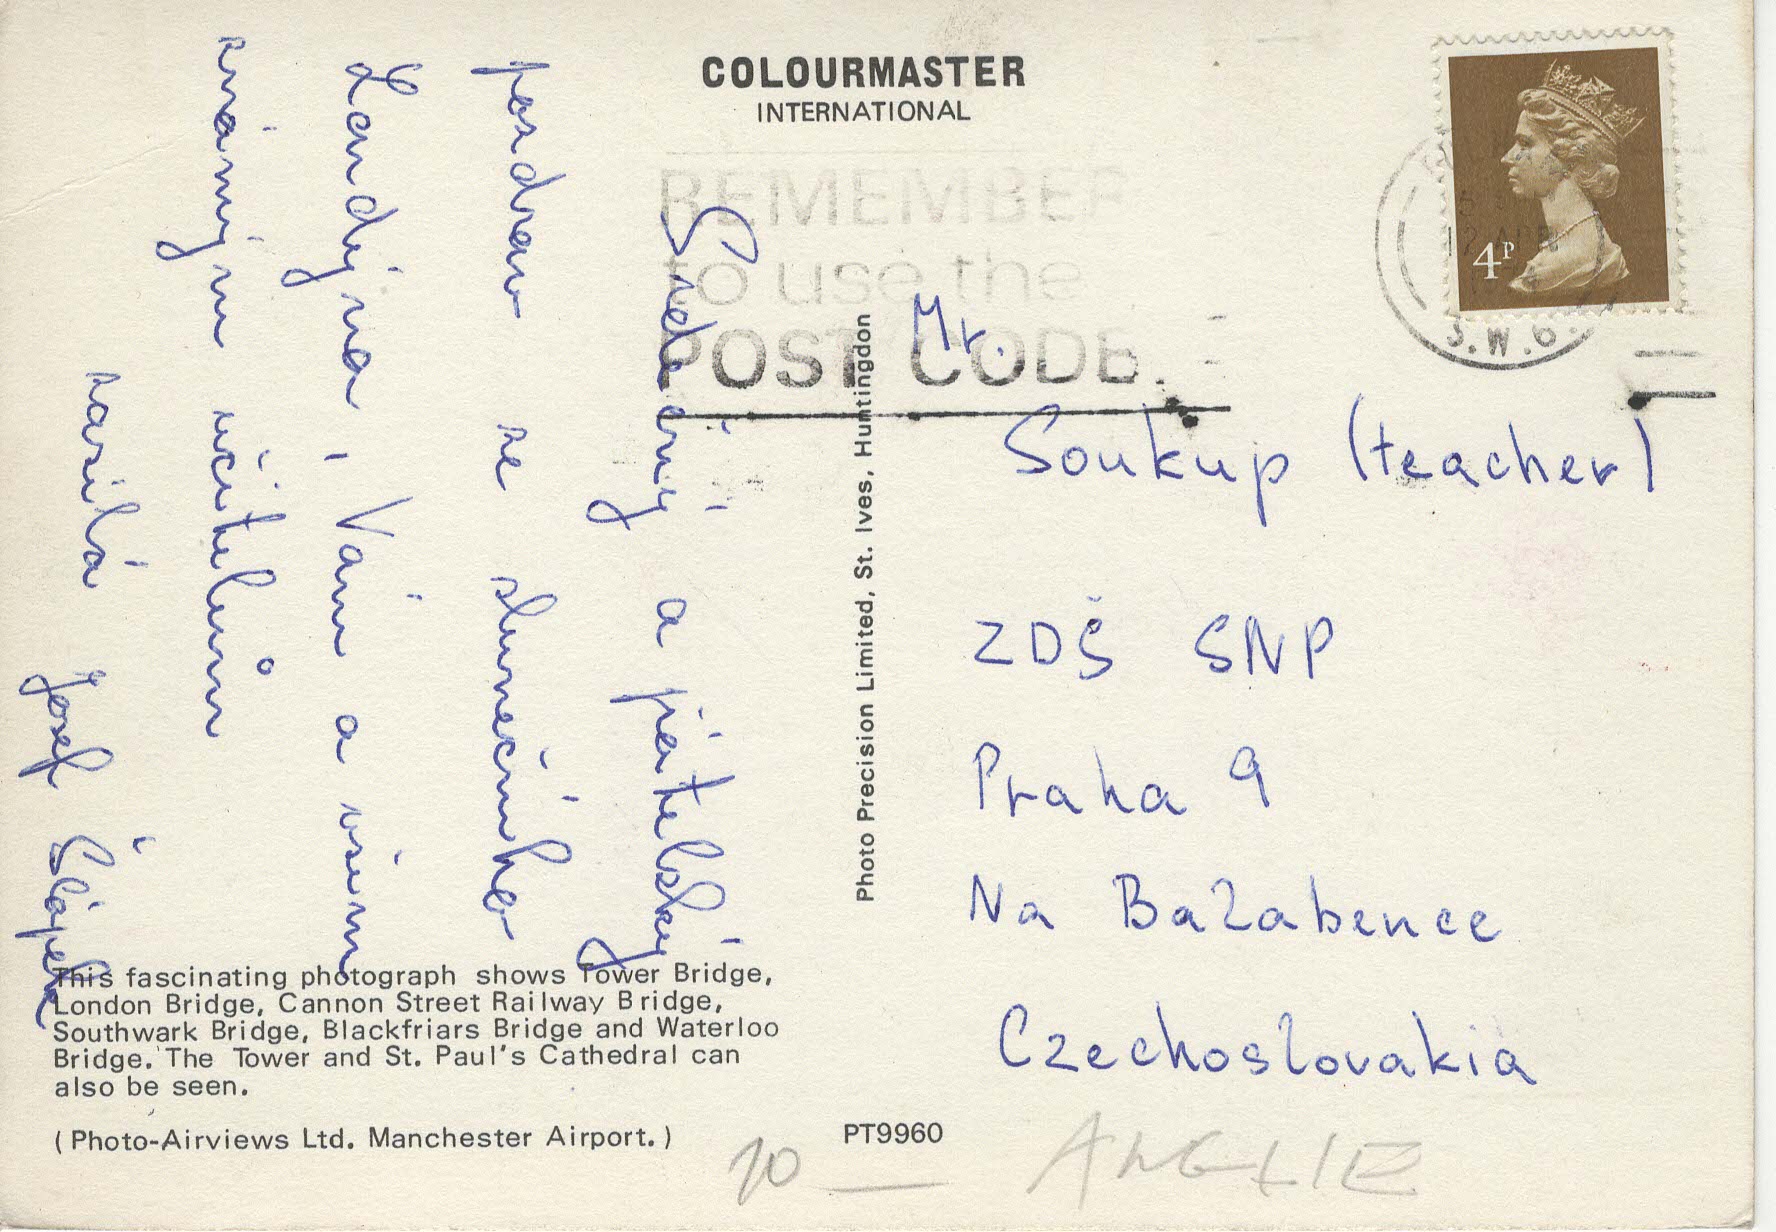 COLOURMASTER
INTERNATIONAL
REMEMBER
to use the
POST CODE
4P
12 APR
S.W.6.
Srdečný a přátelský
pozdrav ze slunečného
Londýna i Vám a všem
známým učitelům
zasílá Josef Šlápek
Photo Precision Limited, St. Ives, Huntingdon
Mr.
Soukup (teacher)
ZDŠ SNP
Praha 9
Na Balabence
Czechoslovakia
This fascinating photograph shows Tower Bridge,
London Bridge, Cannon Street Railway Bridge,
Southwark Bridge, Blackfriars Bridge and Waterloo
Bridge. The Tower and St. Paul's Cathedral can
also be seen.
(Photo-Airviews Ltd. Manchester Airport.)
PT9960
10 ANGLIE